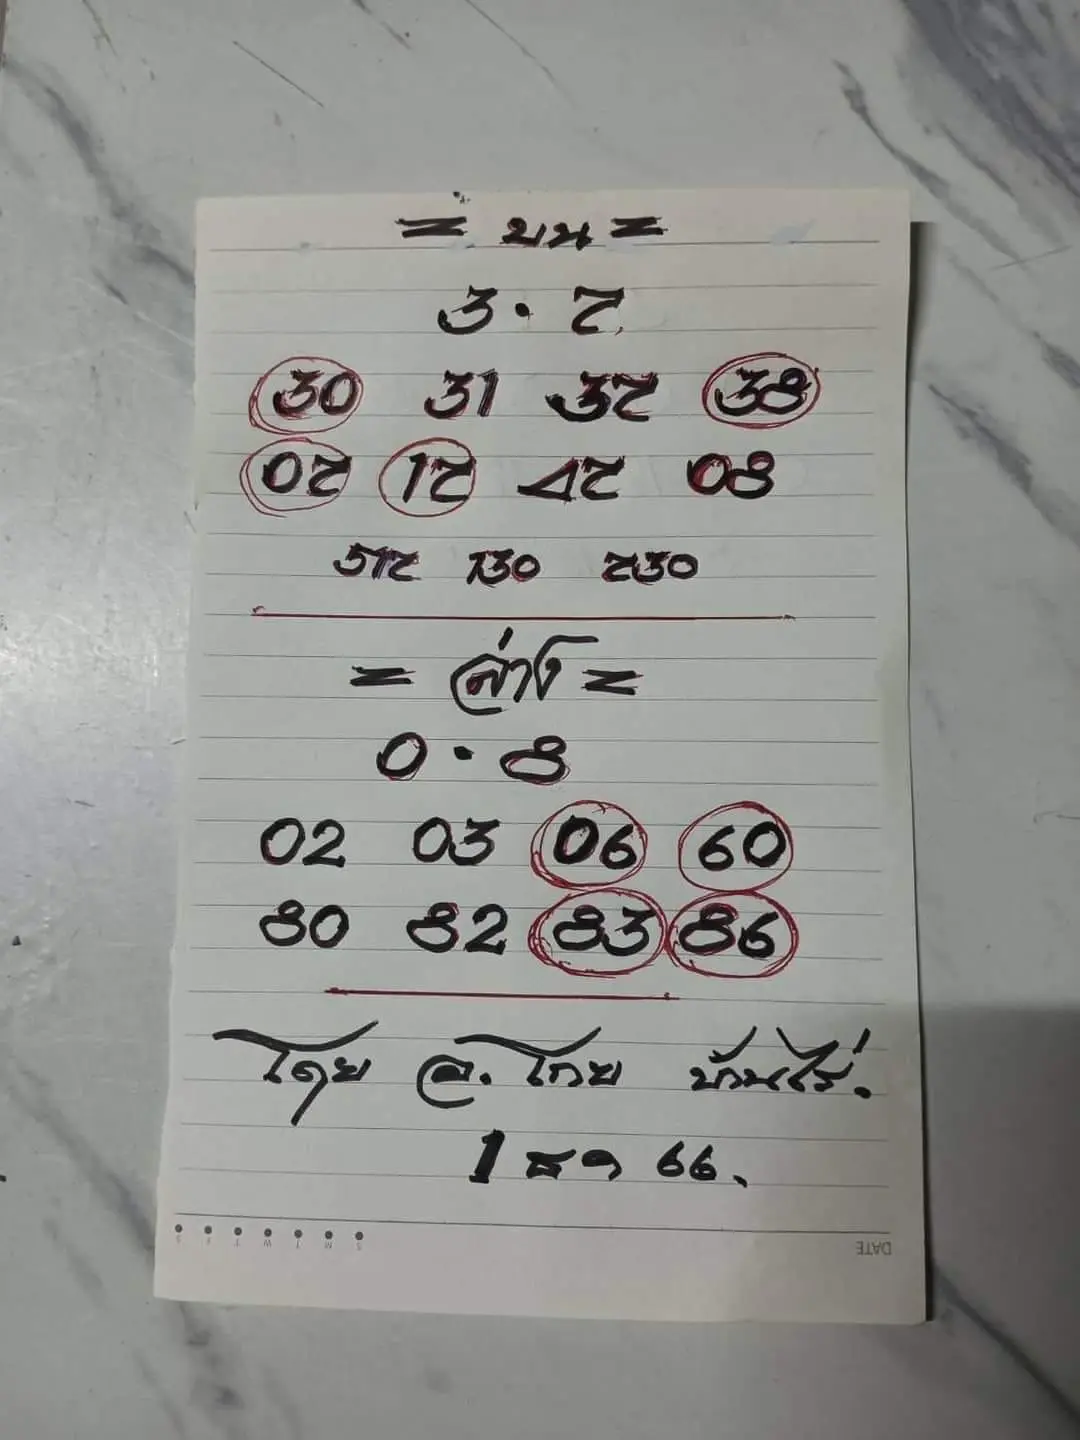 = บน =
3 · 7
30 31 37 38
07 17 47 08
517 130 730
= ล่าง =
0 · 8
02 03 06 60
80 82 83 86
โดย อ. โกย บ้านไร่.
1 ธค 66.
S F T W T M S DATE